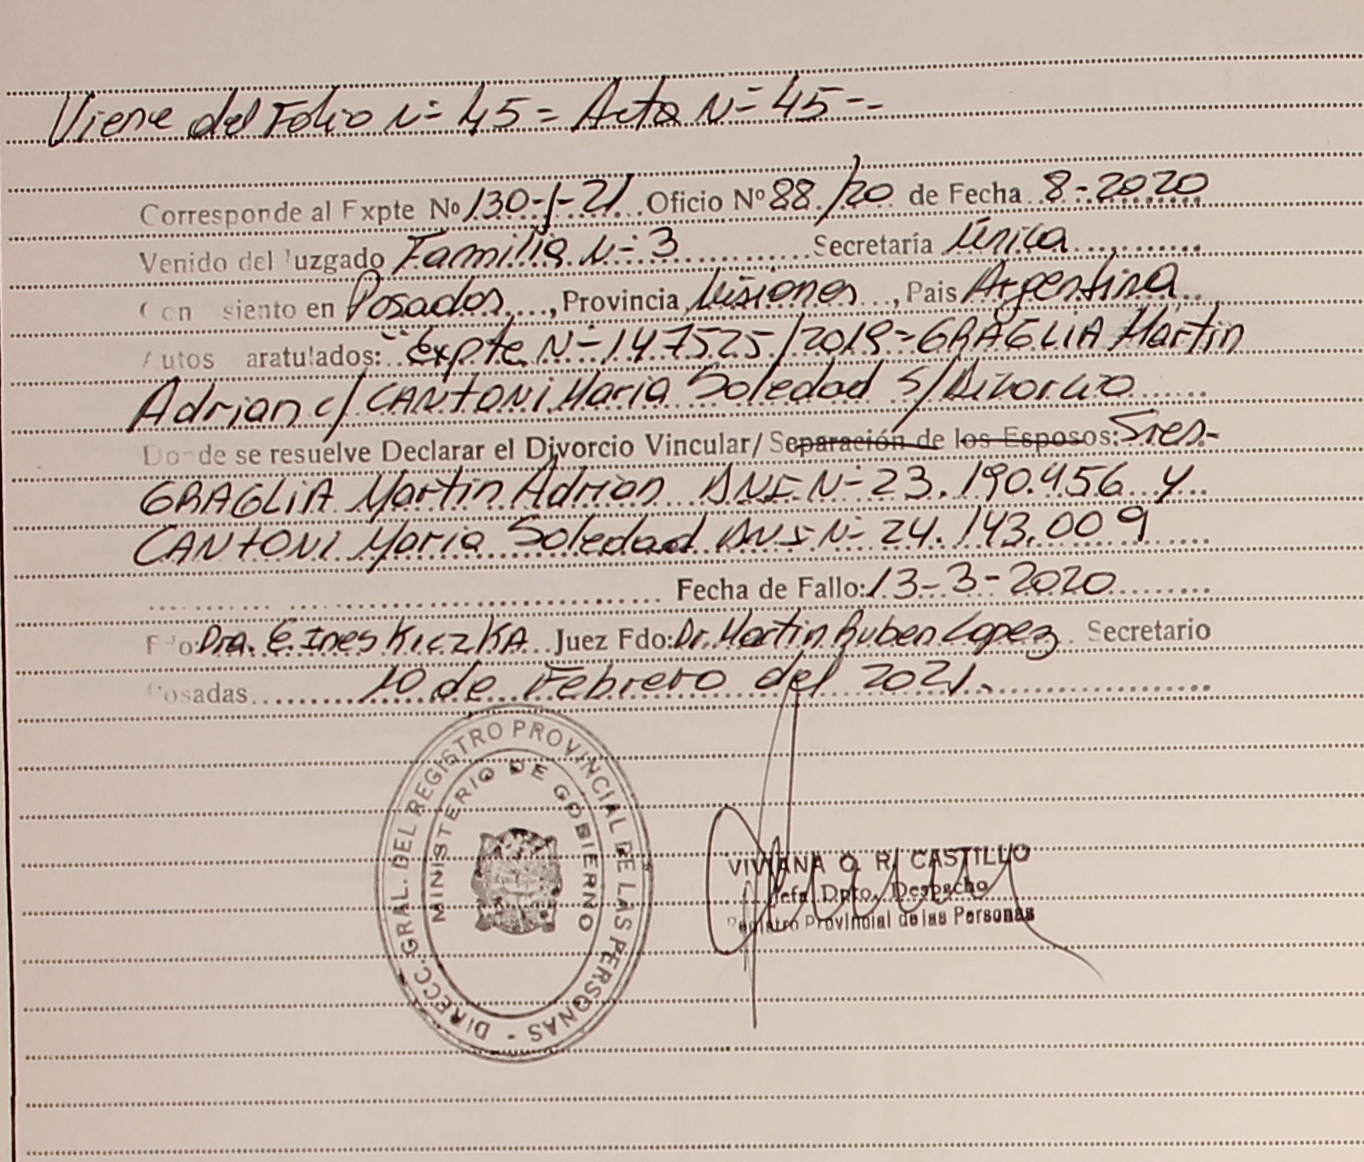 Viene del Folio N= 45 = Acta N= 45--
Corresponde al Expte Nº 130-J-21 Oficio Nº 88/20 de Fecha 8-2020
Venido del Juzgado Familia N-3 Secretaría Única
Con siento en Posadas, Provincia Misiones, Pais Argentina
Autos aratulados: "Expte N-147525/2019-GRAGLIA Martin
Adrian c/ CANTONI Maria Soledad S/Divorcio
Donde se resuelve Declarar el Divorcio Vincular/ Separación de los Esposos: Sres-
GRAGLIA Martin Adrian DNI N-23.190.456 y
CANTONI Maria Soledad DNI N- 24.143.009
Fecha de Fallo: 13-3-2020
Fdo: Dra. E. Ines KiczKA Juez Fdo: Dr. Martin Ruben Lopez Secretario
Posadas 10 de Febrero del 2021.
DIRECC. GRAL. DEL REGISTRO PROVINCIAL DE LAS PERSONAS -
MINISTERIO DE GOBIERNO
VIVIANA O. R. CASTILLO
Jefa Dpto. Despacho
Registro Provincial de las Personas